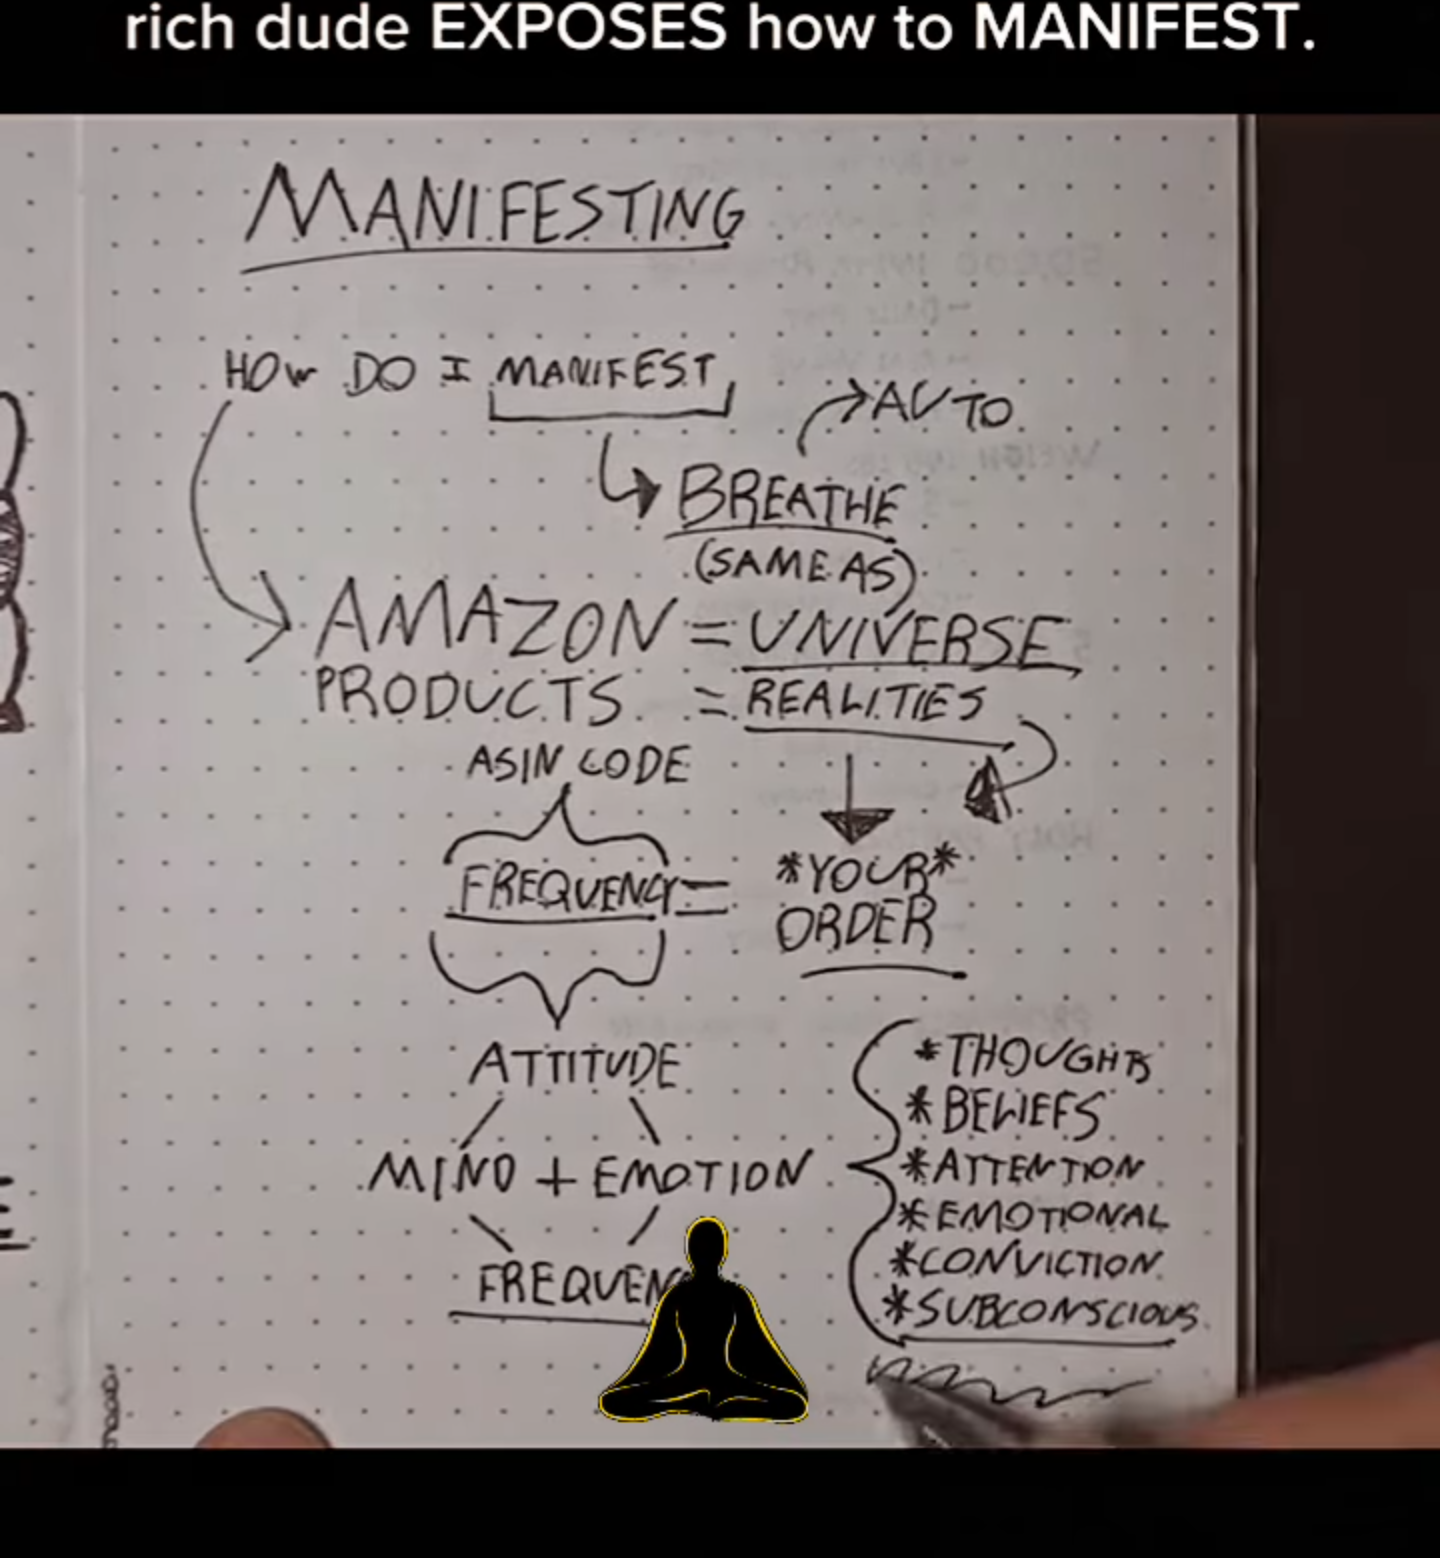 rich dude EXPOSES how to MANIFEST.
MANIFESTING
HOW DO I MANIFEST
AUTO
BREATHE
(SAME AS)
AMAZON = UNIVERSE
PRODUCTS = REALITIES
ASIN CODE
FREQUENCY = *YOUR*
ORDER
ATTITUDE
MIND + EMOTION
FREQUENC
*THOUGHTS
*BELIEFS
*ATTENTION
*EMOTIONAL
*CONVICTION
*SUBCONSCIOUS